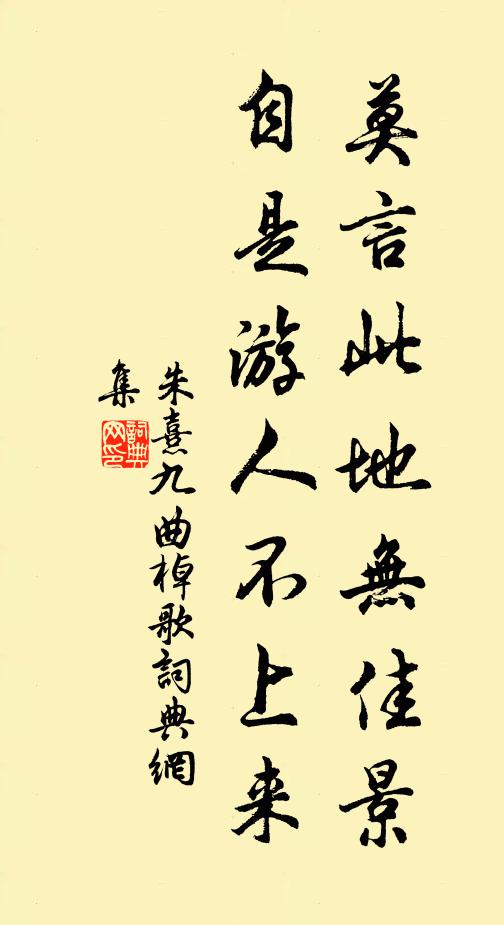 莫言此地無佳景
自是游人不上来
朱熹九曲棹歌詞典網
集
詞典
网印